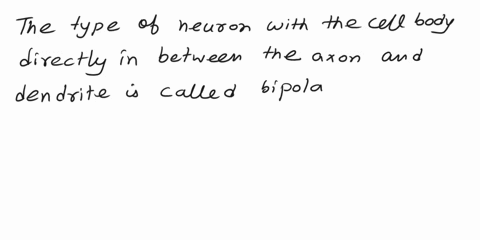 The type of neuron with the cell body
directly in between the axon and
dendrite is called bipola